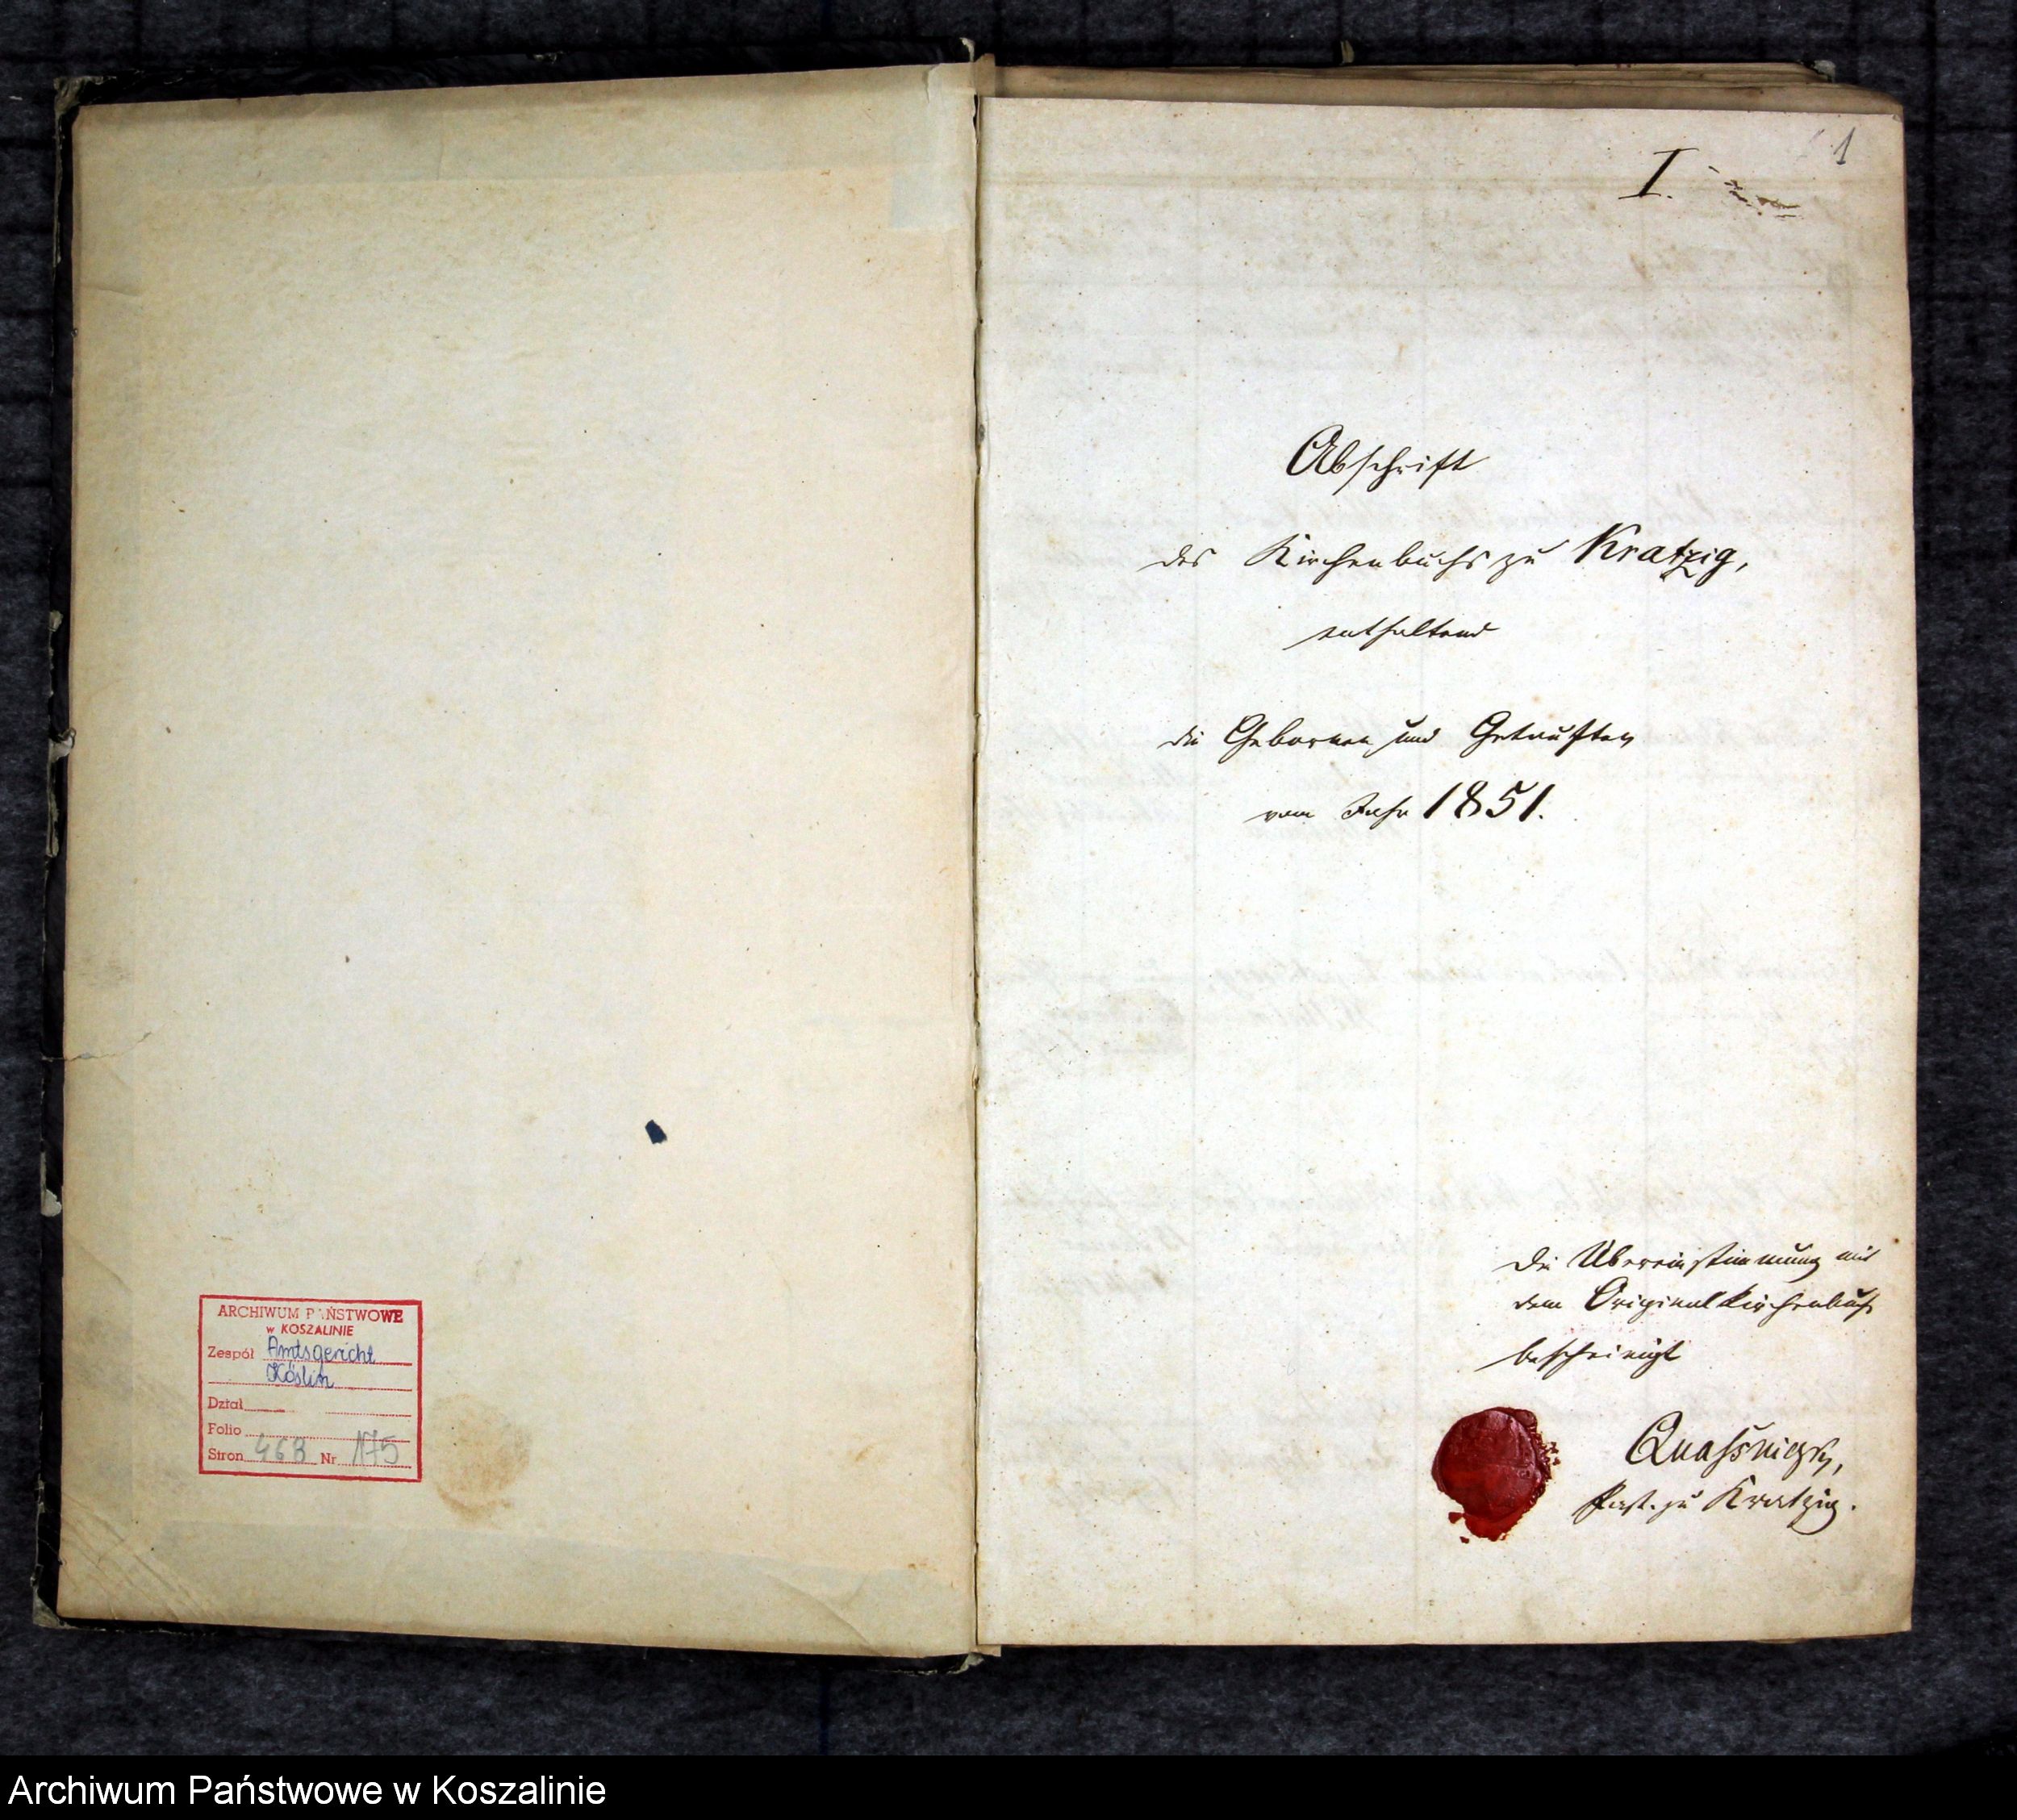 ARCHIWUM PAŃSTWOWE
w KOSZALINIE
Zespół Amtsgericht
Köslin
Dział
Folio
Stron 468 Nr 175
1
I.
Abschrift
des Kirchenbuchs zu Kratzig,
enthaltend
die Gebornen und Getauften
vom Jahr 1851.
Die Übereinstimmung mit
dem Original Kirchenbuch
bescheinigt
Past. zu Kratzig.
Archiwum Państwowe w Koszalinie